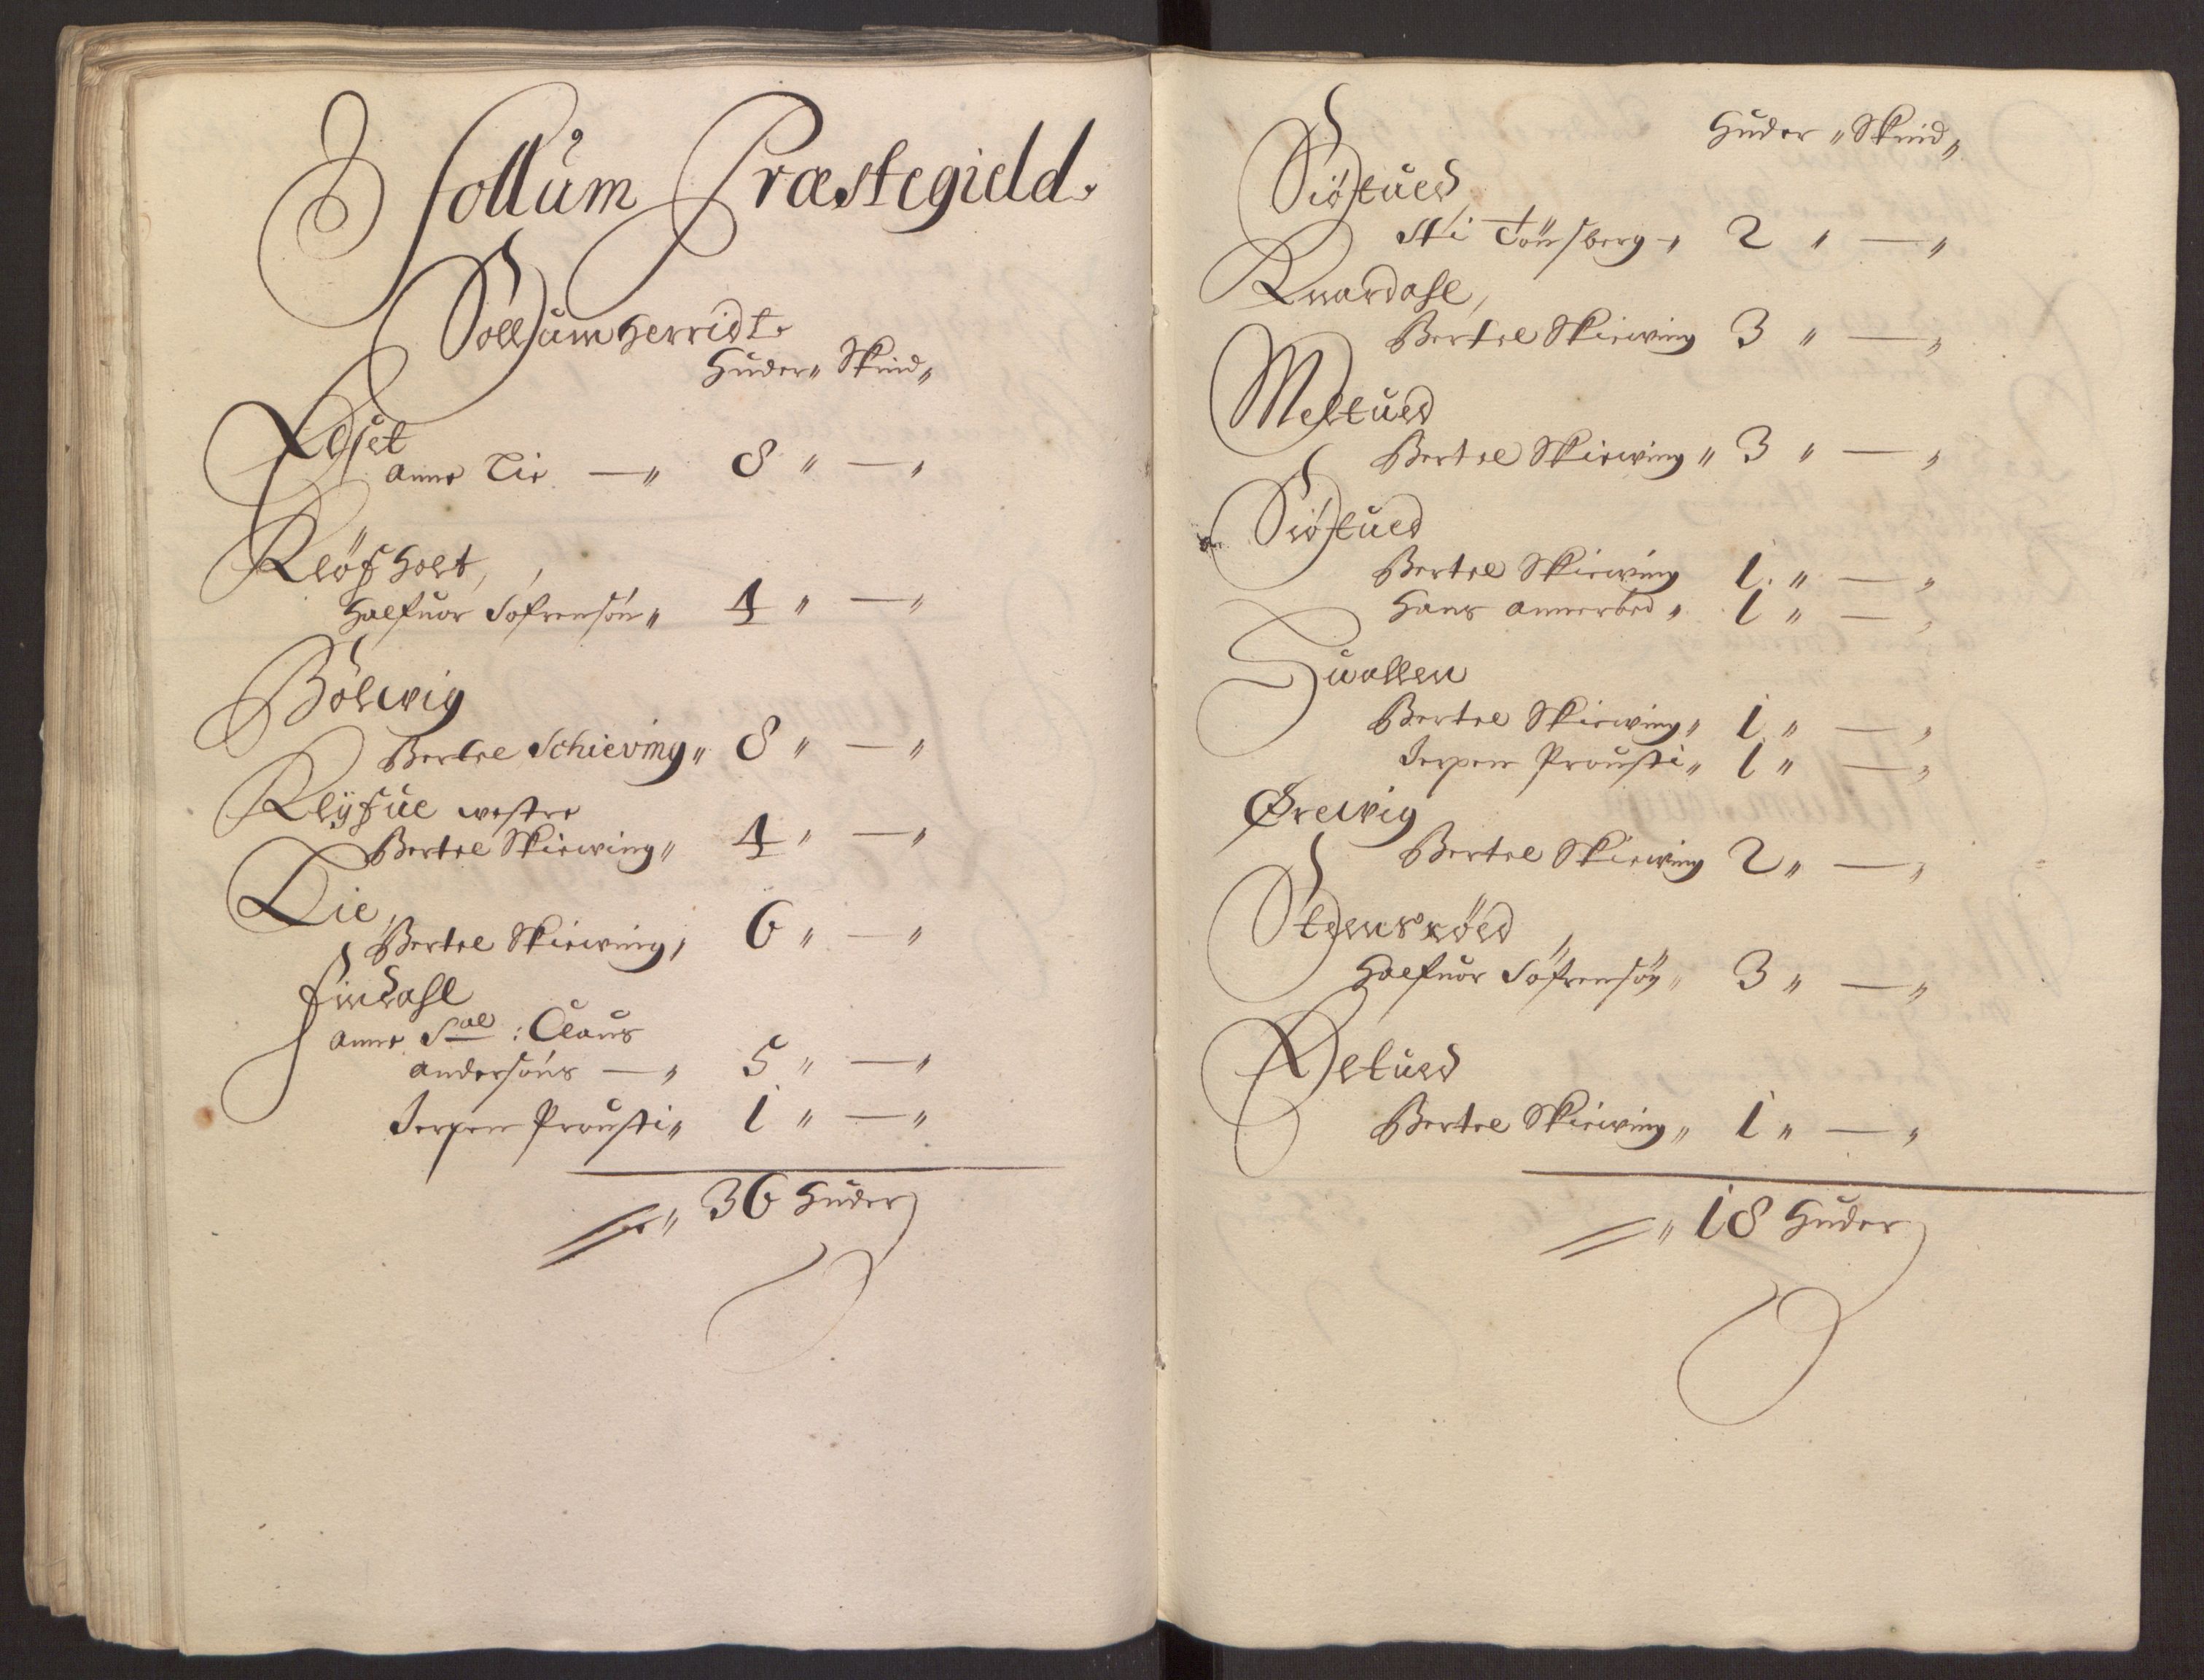 J Sollum Præstegield
Sollum Herridt
Huder „ Skind „
Aset
Anne Lie — „ 8 „ — „
Kløfholt,
Halfuor Søfrensøn „ 4 „ — „
Bölwig
Bertel Schieving „ 8 „ — „
Klÿfue westre
Bertel Skiewing „ 4 „ — „
Lie,
Bertel Skiewing, 6 „ — „
Findahl
Anne Sal: Claus
Andersøns — „ 5 „ — „
Jerpen Prousti „ 1 „ — „
er „ 36 Huder
Huder „ Skind „
Siøtued
Ati Tönsberg „ 2 „ — „
Quardahl,
Bertel Skiewing 3 „ — „
Meltued
Bertel Skiewing „ 3 „ — „
Siøtued
Bertel Skiewing 1 „ — „
Hans Amerbed „ 1 „ — „
Huallen
Bertel Skiewing „ 1 „ — „
Jerpen Prousti „ 1 „ — „
Ørewig
Bertel Skiewing 2 „ — „
Stensrød
Halfuor Söfrensøn „ 3 „ — „
Bertel Skiewing „ 1 „ — „
„ 18 Huder